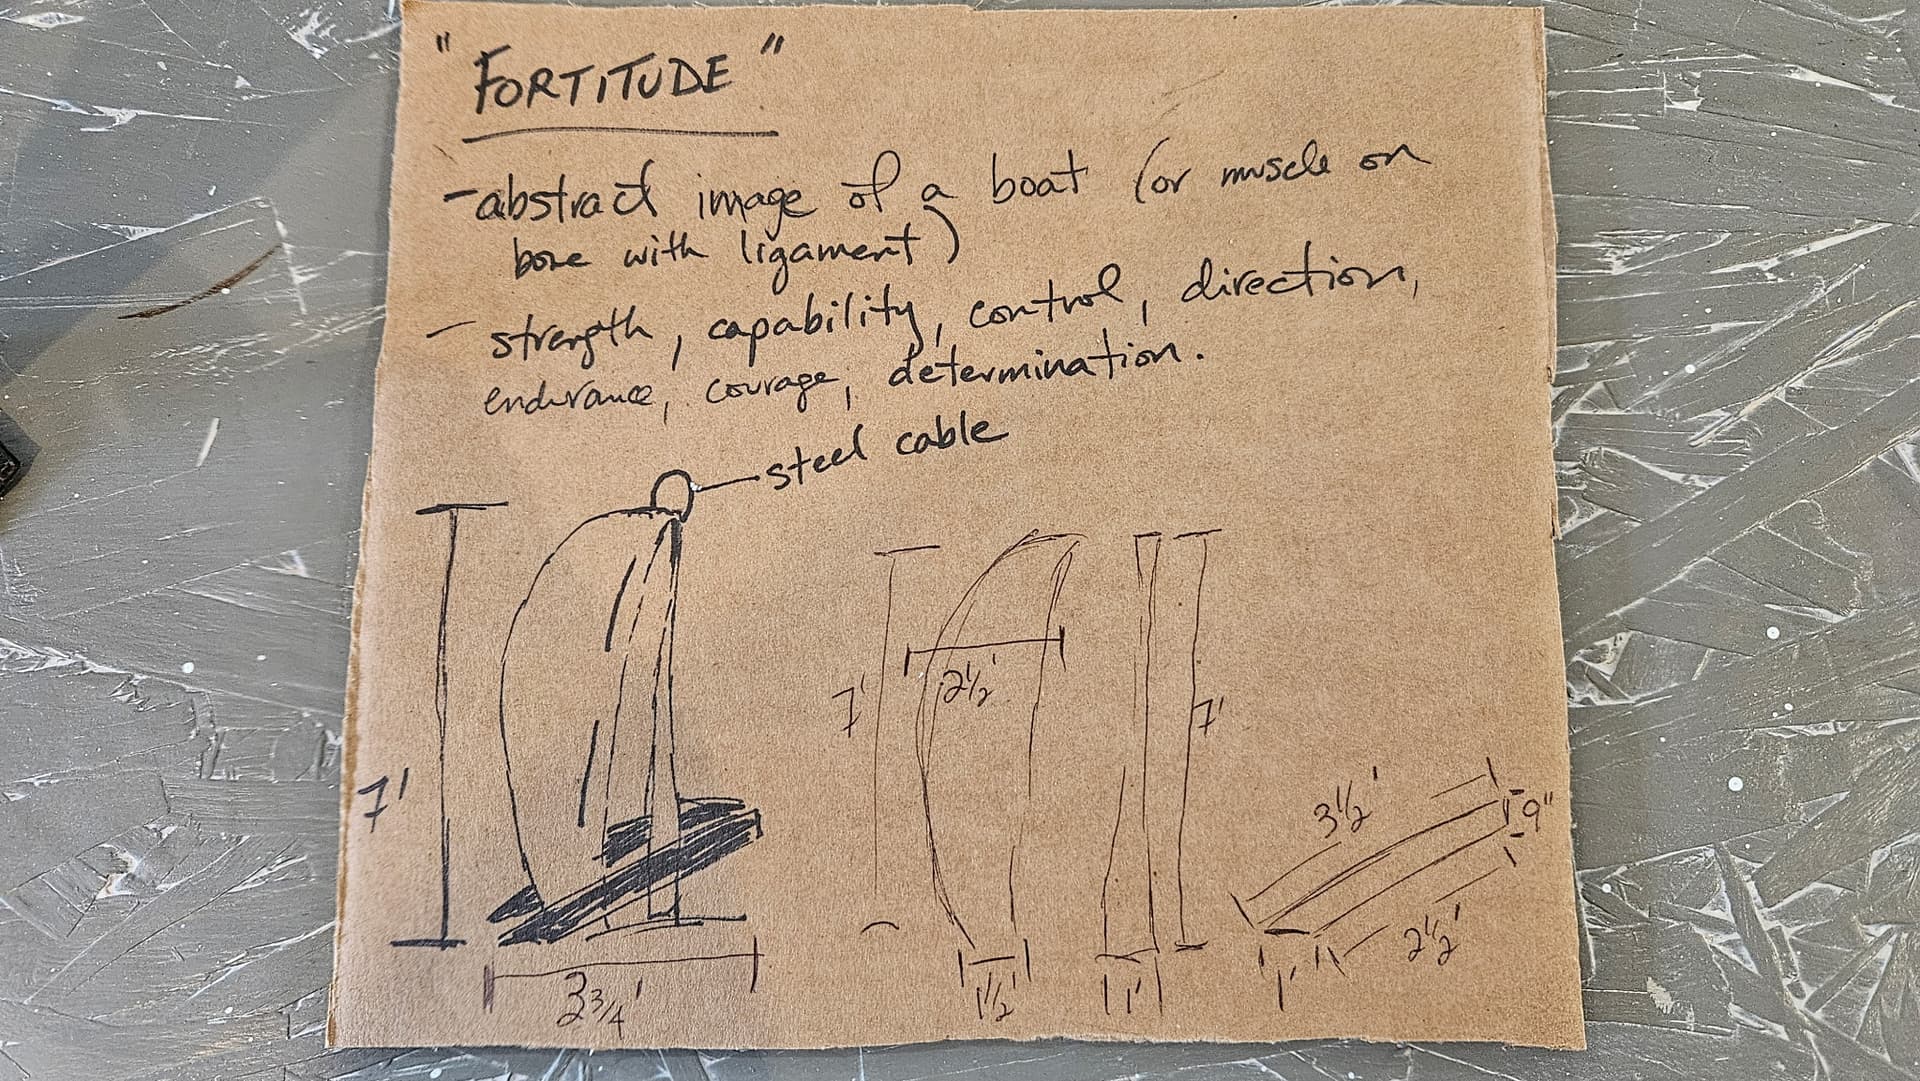 "FORTITUDE"
-abstract image of a boat (or muscle on
bone with ligament)
- strength, capability, control, direction,
endurance, courage, determination.
steel cable
7'
3 3/4'
7'
2 1/2'
1 1/2'
7'
1'
3 1/2'
9"
2 1/2'
1'